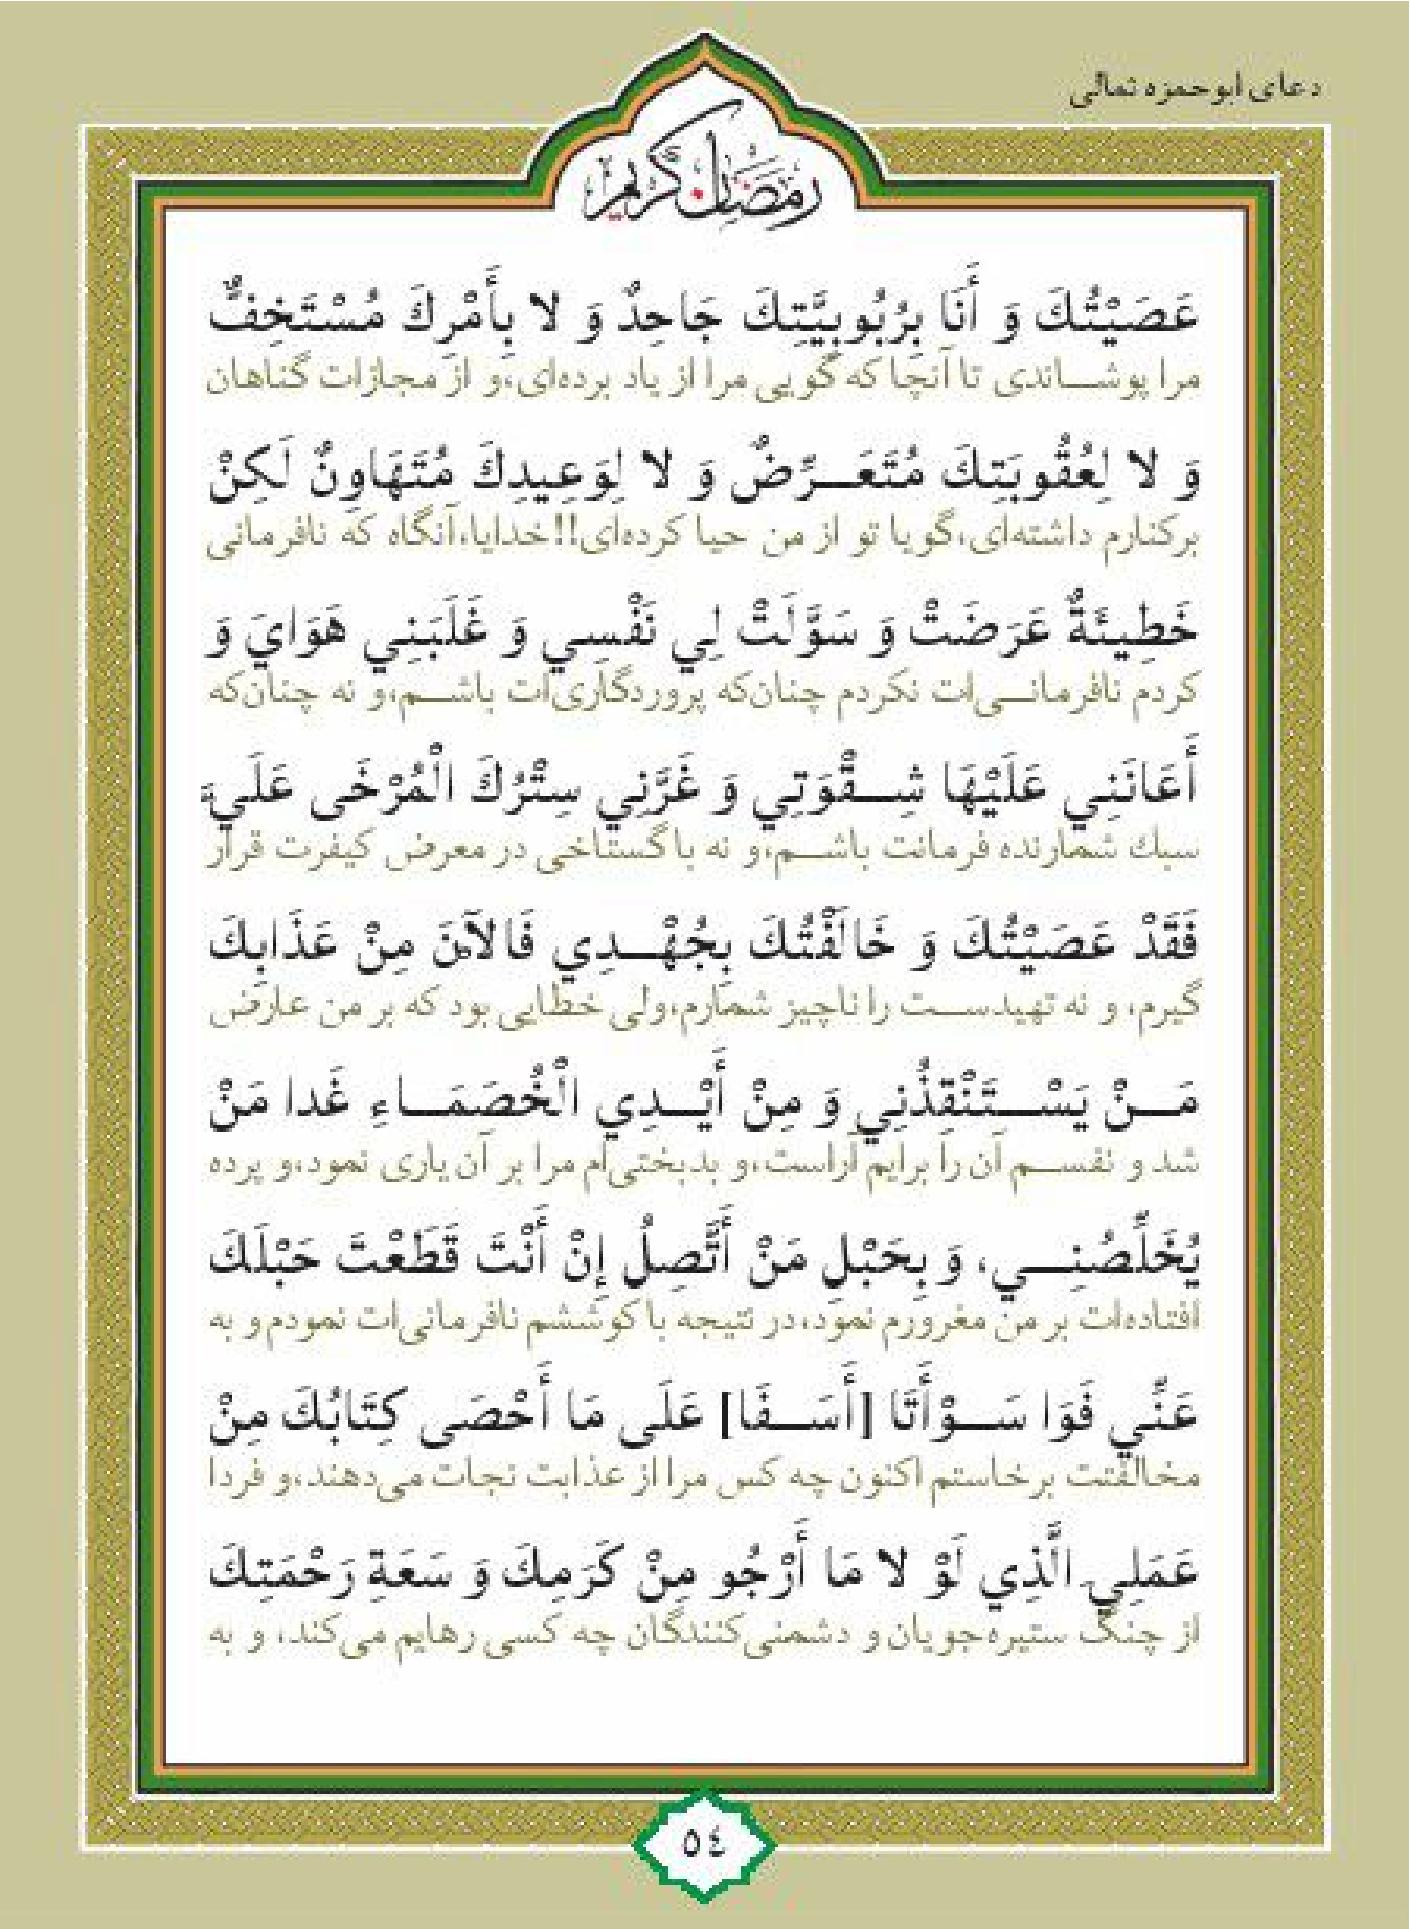 دعای ابوحمزه ثمالی
رمضان كريم
عَصَيْتُكَ وَ أَنَا بِرُبُوبِيَّتِكَ جَاحِدٌ وَ لا بِأَمْرِكَ مُسْتَخِفٌّ
مرا پوشاندی تا آنجا که گویی مرا از یاد برده‌ای،و از مجازات گناهان
وَ لا لِعُقُوبَتِكَ مُتَعَرِّضٌ وَ لا لِوَعِيدِكَ مُتَهَاوِنٌ لَكِنْ
برکنارم داشته‌ای،گویا تو از من حیا کرده‌ای!!خدایا،آنگاه که نافرمانی
خَطِيئَةٌ عَرَضَتْ وَ سَوَّلَتْ لِي نَفْسِي وَ غَلَبَنِي هَوَايَ وَ
کردم نافرمانی‌ات نکردم چنان‌که پروردگاری‌ات باشم،و نه چنان‌که
أَعَانَنِي عَلَيْهَا شِقْوَتِي وَ غَرَّنِي سِتْرُكَ الْمُرْخَى عَلَيَّ
سبك شمارنده فرمانت باشم،و نه با گستاخی در معرض کیفرت قرار
فَقَدْ عَصَيْتُكَ وَ خَالَفْتُكَ بِجُهْدِي فَالآنَ مِنْ عَذَابِكَ
گیرم، و نه تهیدست را ناچیز شمارم،ولی خطایی بود که بر من عارض
مَنْ يَسْتَنْقِذُنِي وَ مِنْ أَيْدِي الْخُصَمَاءِ غَدا مَنْ
شد و نفسم آن را برایم آراست،و بدبختی‌ام مرا بر آن یاری نمود،و پرده
يُخَلِّصُنِي، وَ بِحَبْلِ مَنْ أَتَّصِلُ إِنْ أَنْتَ قَطَعْتَ حَبْلَكَ
افتاده‌ات بر من مغرورم نمود،در نتیجه با کوششم نافرمانی‌ات نمودم و به
عَنِّي فَوَا سَوْأَتَا [أَسَفَا] عَلَى مَا أَحْصَى كِتَابُكَ مِنْ
مخالفتت برخاستم اکنون چه کس مرا از عذابت نجات می‌دهند،و فردا
عَمَلِي الَّذِي لَوْ لا مَا أَرْجُو مِنْ كَرَمِكَ وَ سَعَةِ رَحْمَتِكَ
از چنگ ستیزه‌جویان و دشمنی‌کنندگان چه کسی رهایم می‌کند، و به
٥٤